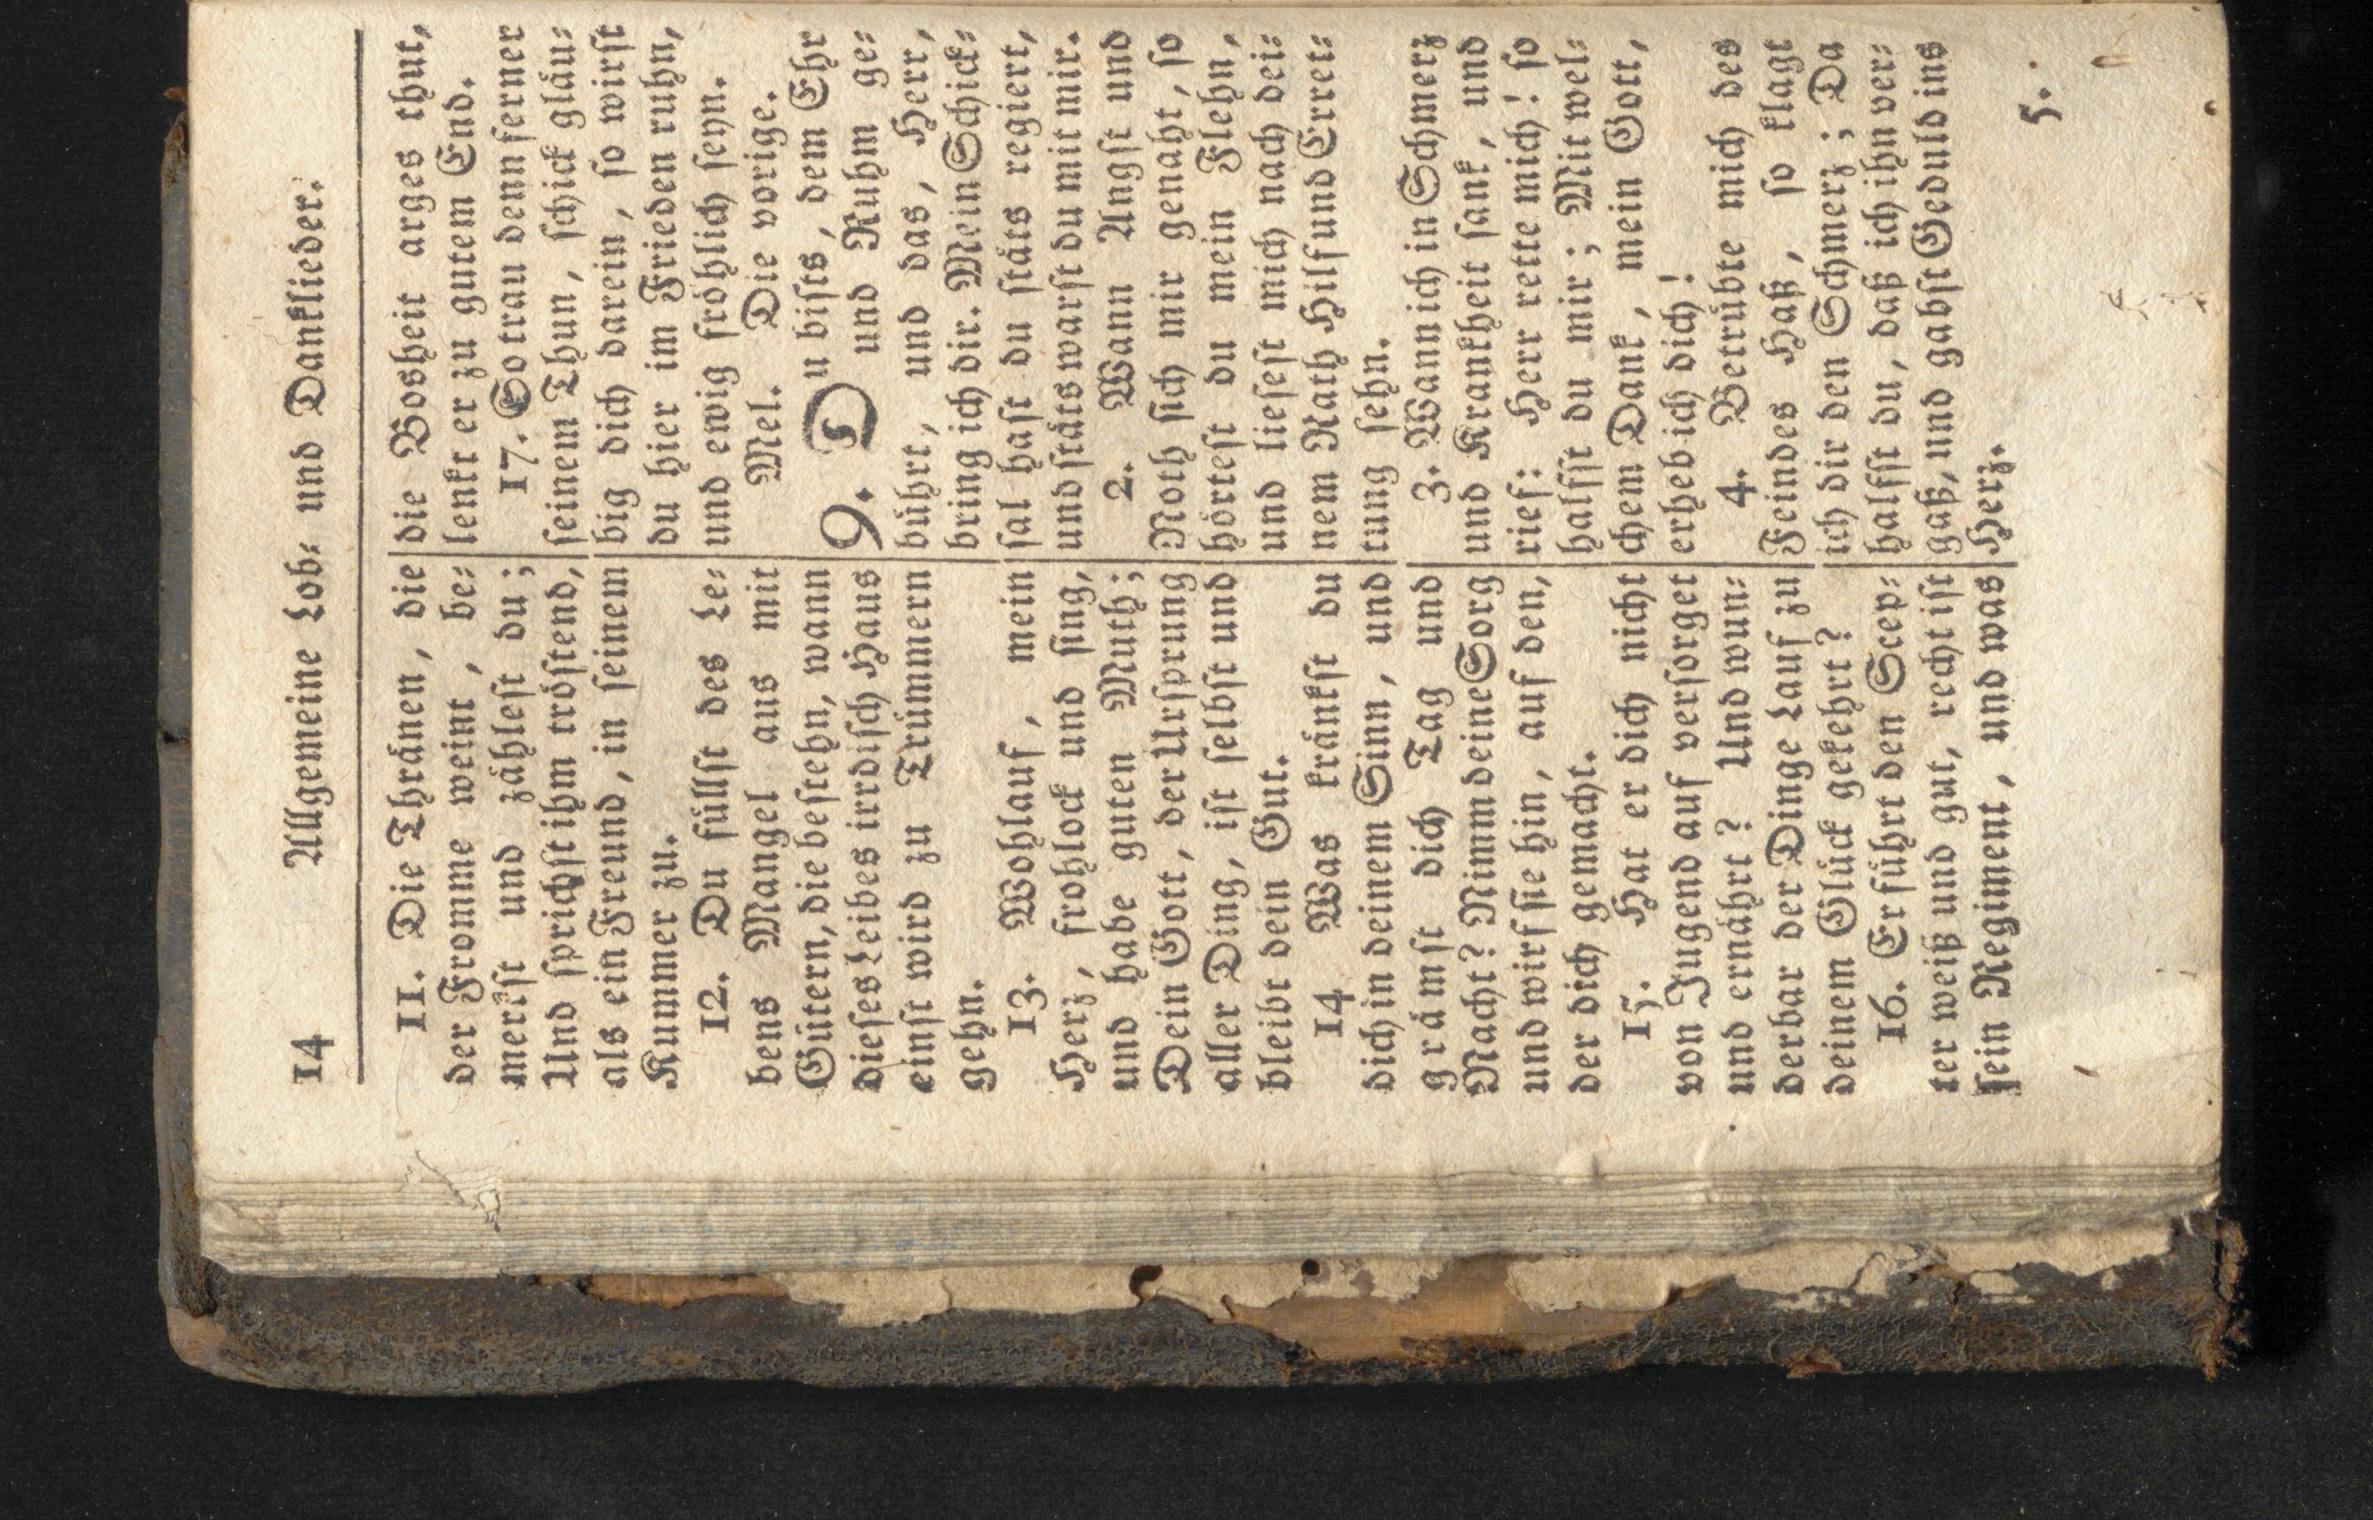 14 Allgemeine Lob- und Danklieder.
11. Die Thränen, die
der Fromme weint, be-
merkst und zählest du;
Und sprichst ihm tröstend,
als ein Freund, in seinem
Kummer zu.
12. Du füllst des Le-
bens Mangel aus mit
Gütern, die bestehn, wann
dieses Leibes irrdisch Haus
einst wird zu Trümmern
gehn.
13. Wohlauf, mein
Herz, frohlock und sing,
und habe guten Muth;
Dein Gott, der Ursprung
aller Ding, ist selbst und
bleibt dein Gut.
14 Was kränkst du
dich in deinem Sinn, und
grämst dich Tag und
Nacht? Nimm deine Sorg
und wirf sie hin, auf den,
der dich gemacht.
15. Hat er dich nicht
von Jugend auf versorget
und ernährt? Und wun-
derbar der Dinge Lauf zu
deinem Glück gekehrt?
16. Er führt den Scep-
ter weiß und gut, recht ist
sein Regiment, und was
die Bosheit arges thut,
lenkt er zu gutem End.
17. So trau denn ferner
seinem Thun, schick gläu-
big dich darein, so wirst
du hier im Frieden ruhn,
und ewig fröhlich seyn.
Mel. Die vorige.
9. Du bists, dem Ehr
und Ruhm ge-
bührt, und das, Herr,
bring ich dir. Mein Schick-
sal hast du stäts regiert,
und stäts warst du mit mir.
2. Wann Angst und
Noth sich mir genaht, so
hörtest du mein Flehn,
und liesest mich nach dei-
nem Rath Hilf und Erret-
tung sehn.
3. Wann ich in Schmerz
und Krankheit sank, und
rief: Herr rette mich! so
halfst du mir; Mit wel-
chem Dank, mein Gott,
erheb ich dich!
4. Betrübte mich des
Feindes Haß, so klagt
ich dir den Schmerz; Da
halfst du, daß ich ihn ver-
gaß, und gabst Geduld ins
Herz.
5.